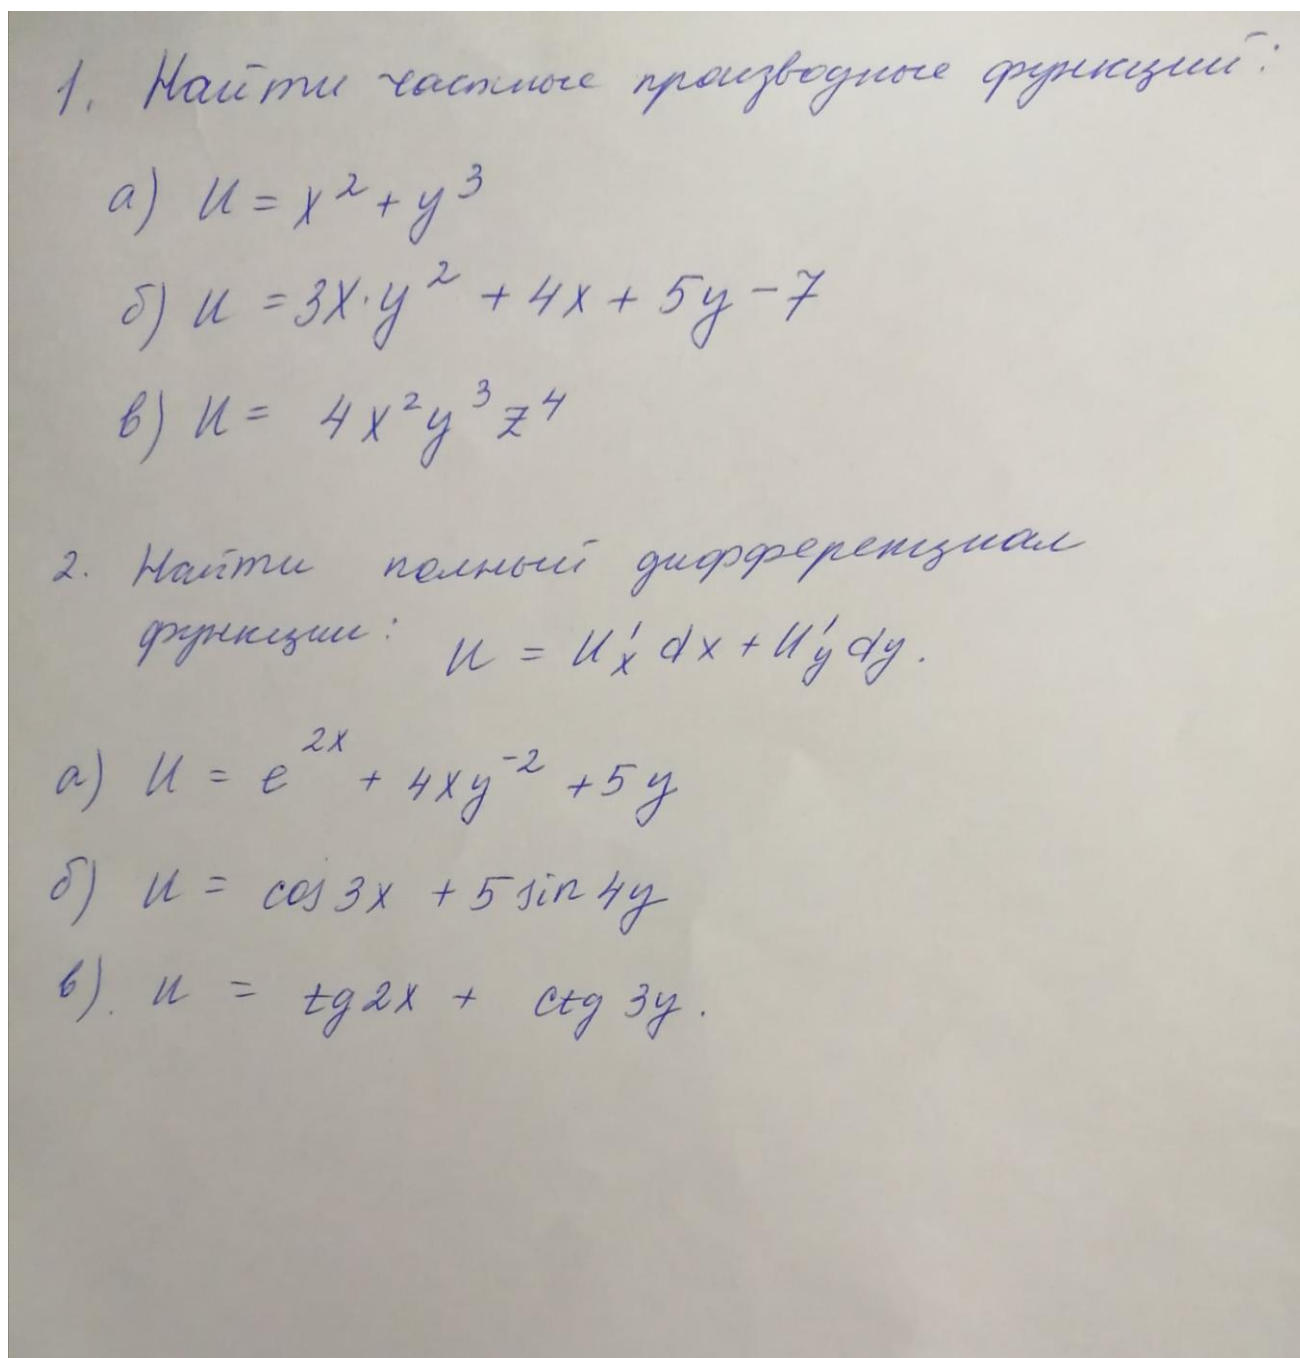 1. Найти частные производные функций:
а) u = x² + y³
б) u = 3x·y² + 4x + 5y − 7
в) u = 4x²y³z⁴
2. Найти полный дифференциал
функции: u = u'ₓ dx + u'_y dy.
а) u = e^{2x} + 4xy⁻² + 5y
б) u = cos 3x + 5 sin 4y
в). u = tg 2x + ctg 3y.